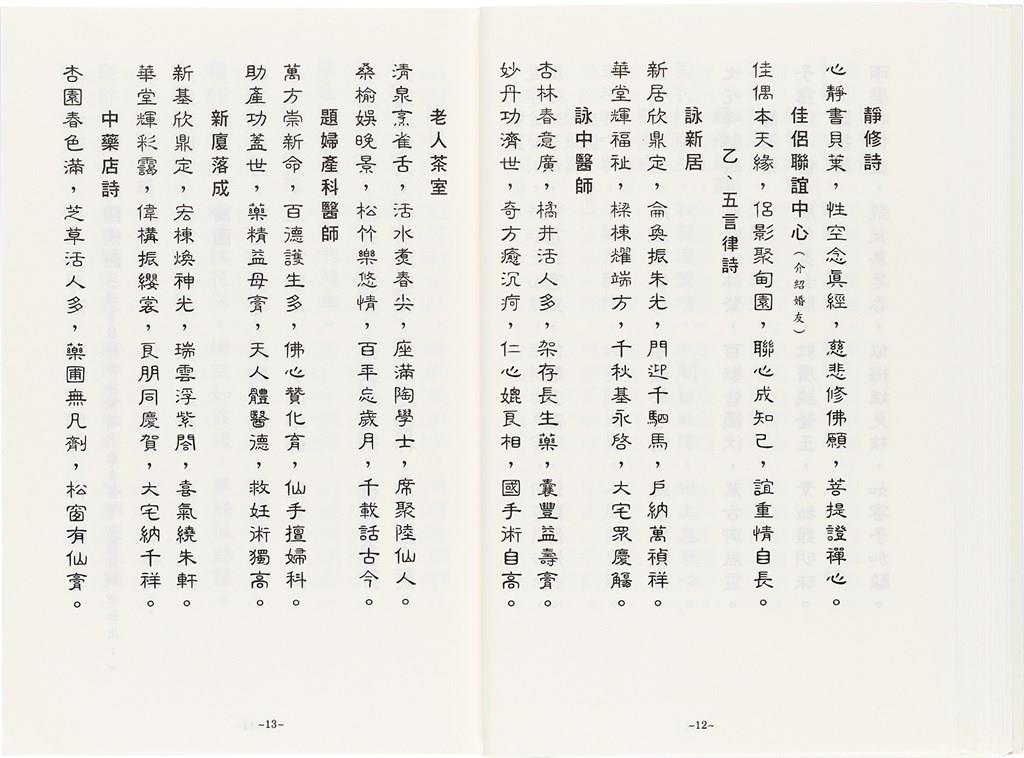 靜修詩
心靜書貝葉，性空念眞經，慈悲修佛願，菩提證禪心。
佳侶聯誼中心（介紹婚友）
佳偶本天緣，侶影聚甸園，聯心成知己，誼重情自長。
乙、五言律詩
詠新居
新居欣鼎定，侖奐振朱光，門迎千駟馬，戶納萬禎祥。
華堂輝福祉，樑棟耀端方，千秋基永啓，大宅眾慶觴。
詠中醫師
杏林春意廣，橘井活人多，架存長生藥，囊豐益壽膏。
妙丹功濟世，奇方癒沉疴，仁心媲良相，國手術自高。
~12~
老人茶室
清泉烹雀舌，活水煮春尖，座滿陶學士，席聚陸仙人。
桑榆娛晚景，松竹樂悠情，百年忘歲月，千載話古今。
題婦產科醫師
萬方崇新命，百德護生多，佛心贊化育，仙手擅婦科。
助產功蓋世，藥精益母膏，天人體醫德，救妊術獨高。
新廈落成
新基欣鼎定，宏棟煥神光，瑞雲浮紫閣，喜氣繞朱軒。
華堂輝彩靄，偉構振纓裳，良朋同慶賀，大宅納千祥。
中藥店詩
杏園春色滿，芝草活人多，藥圃無凡劑，松窗有仙膏。
~13~